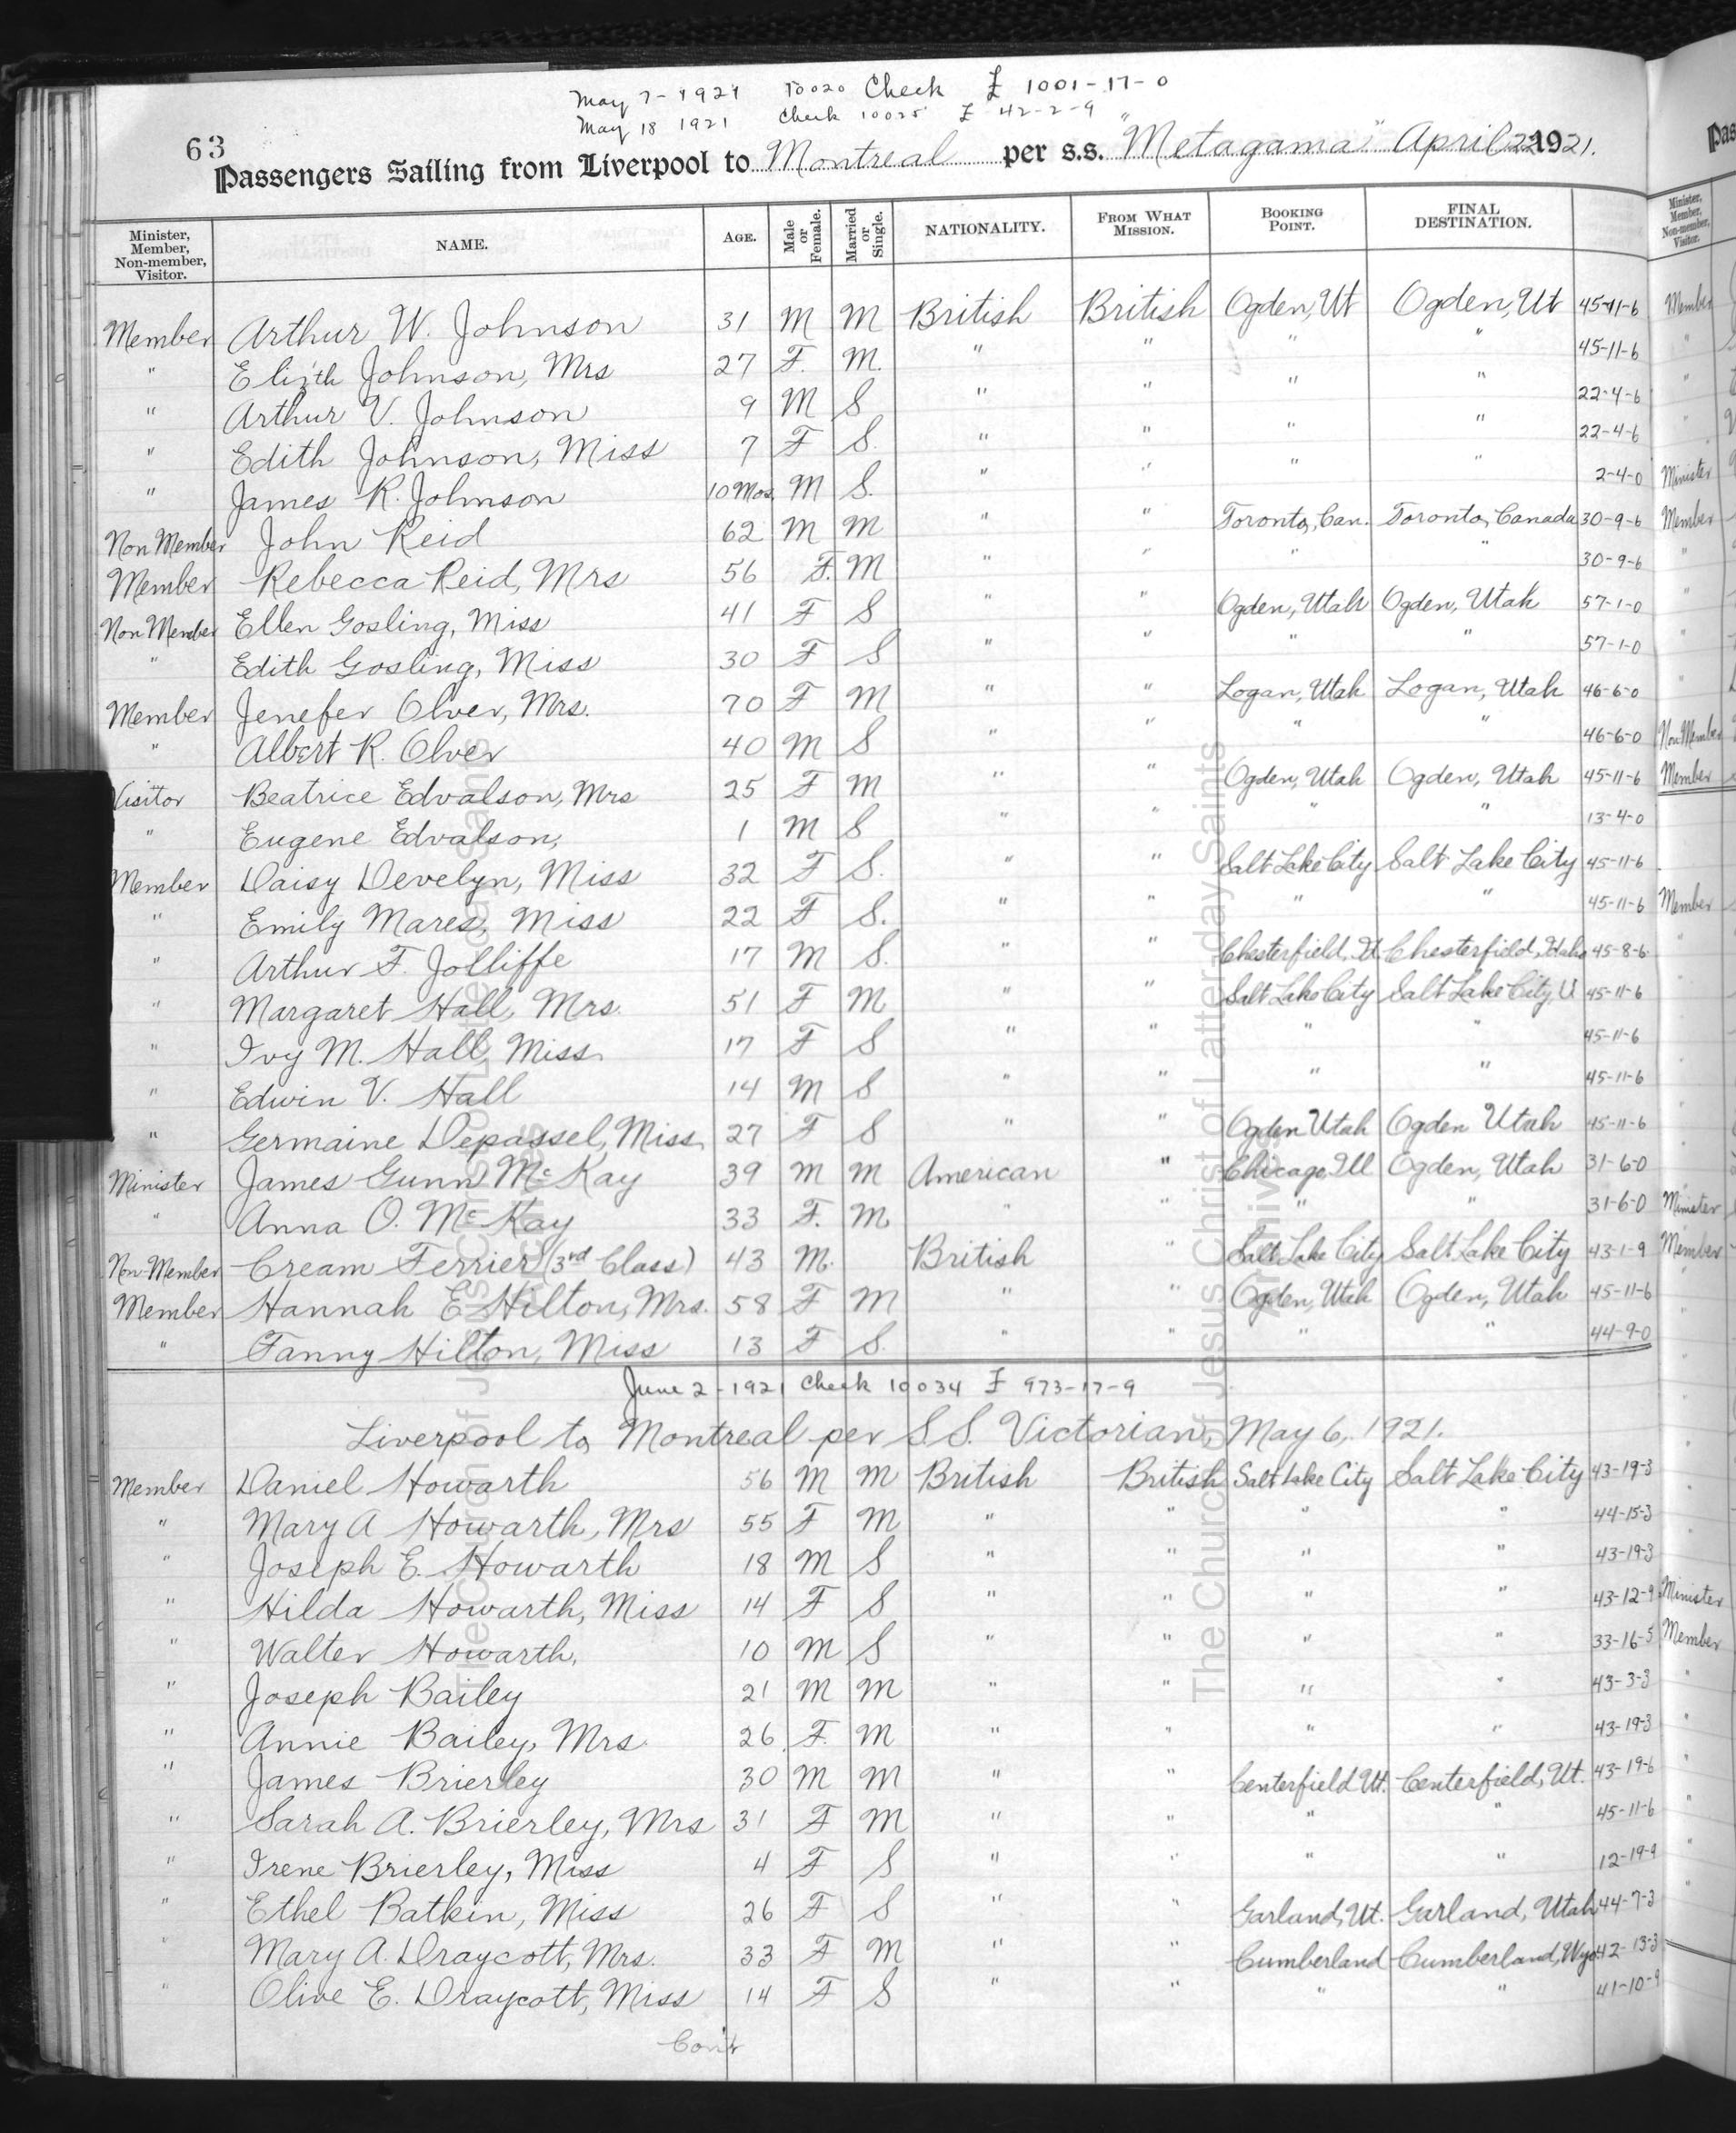 May 7-1921 10020 Check £ 1001-17-0
May 18 1921 Check 10025 £ 42-2-9
63
Passengers Sailing from Liverpool to Montreal per s.s. "Metagama" April 22 1921.
Minister, Member, Non-member, Visitor. NAME. AGE. Male or Female. Married or Single. NATIONALITY. FROM WHAT MISSION. BOOKING POINT. FINAL DESTINATION.
Member Arthur W. Johnson 31 M M British British Ogden, Ut Ogden, Ut 45-11-6
" Elizth Johnson, Mrs 27 F. M. " " " " 45-11-6
" Arthur V. Johnson 9 M S " " " " 22-4-6
" Edith Johnson, Miss 7 F S. " " " " 22-4-6
" James R. Johnson 10 Mos. M S. " " " " 2-4-0
Non Member John Reid 62 M M " " Toronto, Can. Toronto, Canada 30-9-6
Member Rebecca Reid, Mrs 56 F. M " " " " 30-9-6
Non Member Ellen Gosling, Miss 41 F S " " Ogden, Utah Ogden, Utah 57-1-0
" Edith Gosling, Miss 30 F S " " " " 57-1-0
Member Jenefer Olver, Mrs. 70 F M " " Logan, Utah Logan, Utah 46-6-0
" Albert R. Olver 40 M S " " " " 46-6-0
Visitor Beatrice Edvalson, Mrs 25 F M " " Ogden, Utah Ogden, Utah 45-11-6
" Eugene Edvalson, 1 M S " " " " 13-4-0
Member Daisy Develyn, Miss 32 F S. " " Salt Lake City Salt Lake City 45-11-6
" Emily Mares, Miss 22 F S. " " " " 45-11-6
" Arthur F. Jolliffe 17 M S. " " Chesterfield, Id. Chesterfield, Idaho 45-8-6
" Margaret Hall, Mrs. 51 F M " " Salt Lake City Salt Lake City, U 45-11-6
" Ivy M. Hall, Miss. 17 F S " " " " 45-11-6
" Edwin V. Hall 14 M S " " " " 45-11-6
" Germaine Depassel, Miss. 27 F S " " Ogden Utah Ogden Utah 45-11-6
Minister James Gunn McKay 39 M M American " Chicago, Ill Ogden, Utah 31-6-0
" Anna O. McKay 33 F. M " " " " 31-6-0
Non-Member Cream Ferrier (3rd Class) 43 M. British " Salt Lake City Salt Lake City 43-1-9
Member Hannah E Hilton, Mrs. 58 F M " " Ogden, Utah Ogden, Utah 45-11-6
" Fanny Hilton, Miss 13 F S. " " " " 44-9-0
June 2-1921 Check 10034 £ 973-17-9
Liverpool to Montreal per S.S. Victorian, May 6, 1921.
Member Daniel Howarth 56 M M British British Salt Lake City Salt Lake City 43-19-3
" Mary A Howarth, Mrs 55 F M " " " " 44-15-3
" Joseph E. Howarth 18 M S " " " " 43-19-3
" Hilda Howarth, Miss 14 F S " " " " 43-12-9
" Walter Howarth, 10 M S " " " " 33-16-5
" Joseph Bailey 21 M M " " " " 43-3-3
" Annie Bailey, Mrs. 26 F. M " " " " 43-19-3
" James Brierley 30 M M " " Centerfield Ut. Centerfield, Ut. 43-19-6
" Sarah A. Brierley, Mrs 31 F M " " " " 45-11-6
" Irene Brierley, Miss 4 F S " " " " 12-19-9
" Ethel Batkin, Miss 26 F S " " Garland, Ut. Garland, Utah 44-7-3
" Mary A. Draycott, Mrs. 33 F M " " Cumberland Cumberland, Wyo. 42-13-3
" Olive E. Draycott, Miss 14 F S " " " " 41-10-9
Con't
The Church of Jesus Christ of Latter-day Saints
Archives